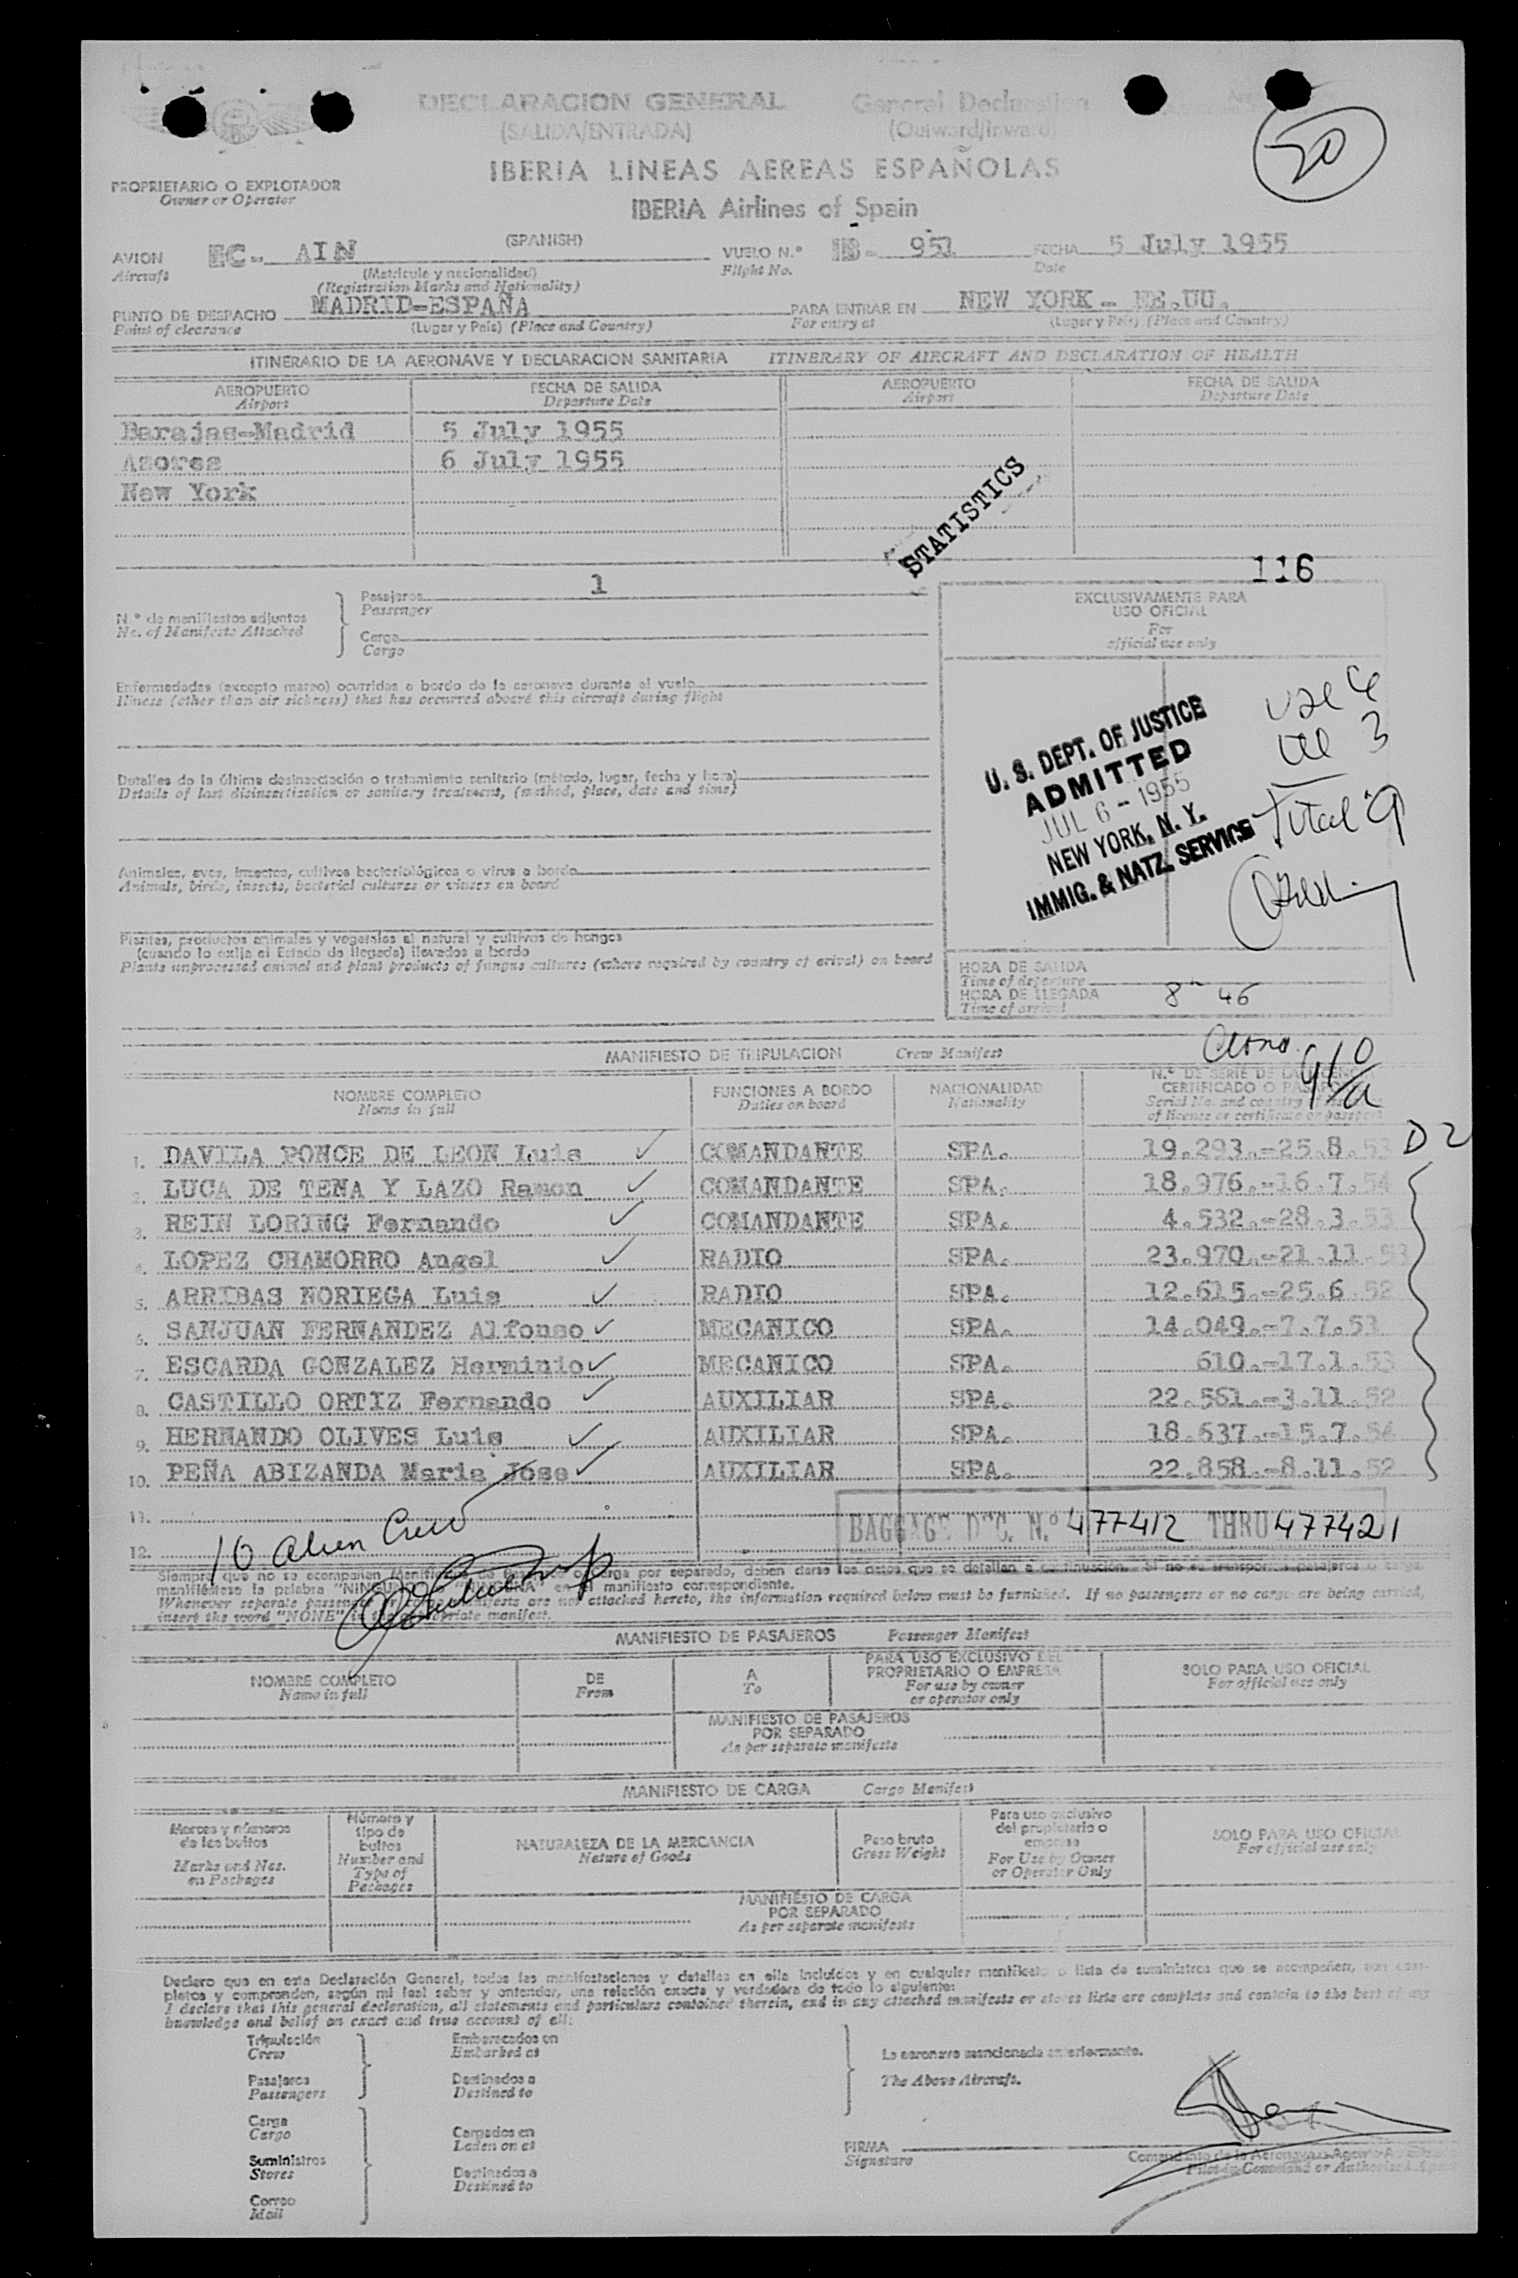 DECLARACION GENERAL General Declaration
(SALIDA/ENTRADA) (Outward/Inward)
50
IBERIA LINEAS AEREAS ESPAÑOLAS
PROPRIETARIO O EXPLOTADOR
Owner or Operator
IBERIA Airlines of Spain
(SPANISH)
AVION EC- AIN VUELO N.º IB- 951 FECHA 5 July 1955
Aircraft (Matricula y nacionalidad) Flight No. Date
(Registration Marks and Nationality)
PUNTO DE DESPACHO MADRID-ESPAÑA PARA ENTRAR EN NEW YORK- EE.UU.
Point of clearance (Lugar y País) (Place and Country) For entry at (Lugar y País) (Place and Country)
ITINERARIO DE LA AERONAVE Y DECLARACION SANITARIA ITINERARY OF AIRCRAFT AND DECLARATION OF HEALTH
AEROPUERTO FECHA DE SALIDA AEROPUERTO FECHA DE SALIDA
Airport Departure Date Airport Departure Date
Barajas-Madrid 5 July 1955
Azores 6 July 1955
New York
STATISTICS
116
1
N.º de manifiestos adjuntos
No. of Manifests Attached
Pasajeros
Passenger
Carga
Cargo
EXCLUSIVAMENTE PARA
USO OFICIAL
For
official use only
Enfermedades (excepto mareo) ocurridas a bordo de la aeronave durante el vuelo
Illness (other than air sickness) that has occurred aboard this aircraft during flight
Detalles de la última desinsectación o tratamiento sanitario (método, lugar, fecha y hora)
Details of last disinsectization or sanitary treatment, (method, place, date and time)
Animales, aves, insectos, cultivos bacteriológicos o virus a bordo
Animals, birds, insects, bacterial cultures or viuses on board
Plantas, productos animales y vegetales al natural y cultivos de hongos
(cuando lo exija el Estado de llegada) llevados a bordo
Plants unprocessed animal and plant products of fungus cultures (where required by country of arival) on board
U. S. DEPT. OF JUSTICE
ADMITTED
JUL 6 - 1955
NEW YORK, N. Y.
IMMIG. & NATZ. SERVICE
3
Total 9
HORA DE SALIDA
Time of departure
HORA DE LLEGADA 8 46
Time of arrival
MANIFIESTO DE TRIPULACION Crew Manifest
NOMBRE COMPLETO FUNCIONES A BORDO NACIONALIDAD N.º DE SERIE DE LA
Name in full Duties on board Nationality CERTIFICADO O
Serial No. and country
of licence or certificate or passport
1. DAVILA PONCE DE LEON Luis COMANDANTE SPA. 19.293.-25.8.53 D2
2. LUCA DE TENA Y LAZO Ramon COMANDANTE SPA. 18.976.-16.7.54
3. REIN LORING Fernando COMANDANTE SPA. 4.532.-28.3.53
4. LOPEZ CHAMORRO Angel RADIO SPA. 23.970.-21.11.53
5. ARRIBAS NORIEGA Luis RADIO SPA. 12.615.-25.6.52
6. SANJUAN FERNANDEZ Alfonso MECANICO SPA. 14.049.-7.7.53
7. ESCARDA GONZALEZ Herminio MECANICO SPA. 610.-17.1.53
8. CASTILLO ORTIZ Fernando AUXILIAR SPA. 22.561.-3.11.52
9. HERNANDO OLIVES Luis AUXILIAR SPA. 18.637.-15.7.54
10. PEÑA ABIZANDA Maria Jose AUXILIAR SPA. 22.858.-8.11.52
11.
12.
10 Alien Crew
BAGGAGE DEC. N.º 477412 THRU 477421
Siempre que no se acompañen Manifiestos de por separado, deben darse los datos que se detallan a continuación. Si no se transportan pasajeros o carga
manifiéstese la palabra en el manifiesto correspondiente.
Whenever separate passenger or cargo manifests are not attached hereto, the information required below must be furnished. If no passengers or no cargo are being carried,
insert the word "NONE" in the appropriate manifest.
MANIFIESTO DE PASAJEROS Passenger Manifest
NOMBRE COMPLETO DE A PARA USO EXCLUSIVO DEL SOLO PARA USO OFICIAL
Name in full From To PROPRIETARIO O EMPRESA For official use only
For use by owner
or operator only
MANIFIESTO DE PASAJEROS
POR SEPARADO
As per separate manifests
MANIFIESTO DE CARGA Cargo Manifest
Marcas y números
de los bultos
Marks and Nos.
on Packages
Número y
tipo de
bultos
Number and
Type of
Packages
NATURALEZA DE LA MERCANCIA
Nature of Goods
Peso bruto
Gross Weight
Para uso exclusivo
del propietario o
empresa
For Use by Owner
or Operator Only
SOLO PARA USO OFICIAL
For official use only
MANIFIESTO DE CARGA
POR SEPARADO
As per separate manifests
Declaro que en esta Declaración General, todas las manifestaciones y detalles en ella incluidos y en cualquier manifiesto o lista de suministros que se acompañen, son com-
pletos y comprenden, según mi leal saber y entender, una relación exacta y verdadera de todo lo siguiente:
I declare that this general declaration, all statements and particulars contained therein, and in any attached manifests or stores lists are complete and contain to the best of my
knowledge and belief an exact and true account of all:
Tripulación
Crew
Pasajeros
Passengers
Embarcados en
Embarked at
Destinados a
Destined to
La aeronave mencionada anteriormente.
The Above Aircraft.
Carga
Cargo
Suministros
Stores
Correo
Mail
Cargados en
Laden on at
Destinados a
Destined to
FIRMA
Signature
Comandante de la Aeronave o Agente
Pilot in Command or Authorised